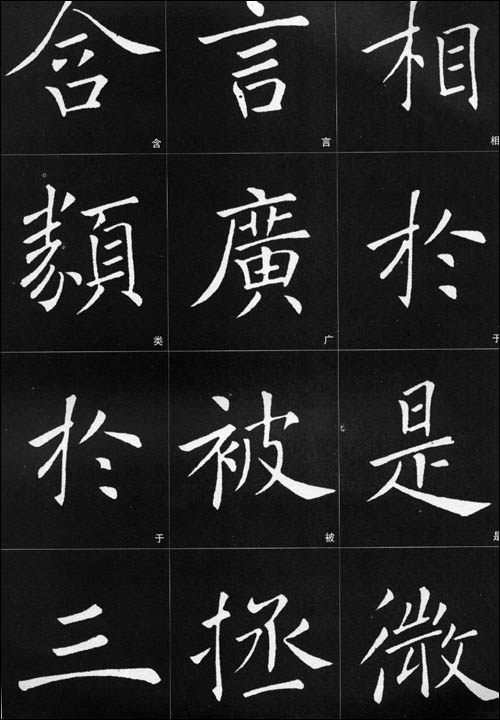 相於是微
相于是
言廣被拯
言广被
含類於三
含类于